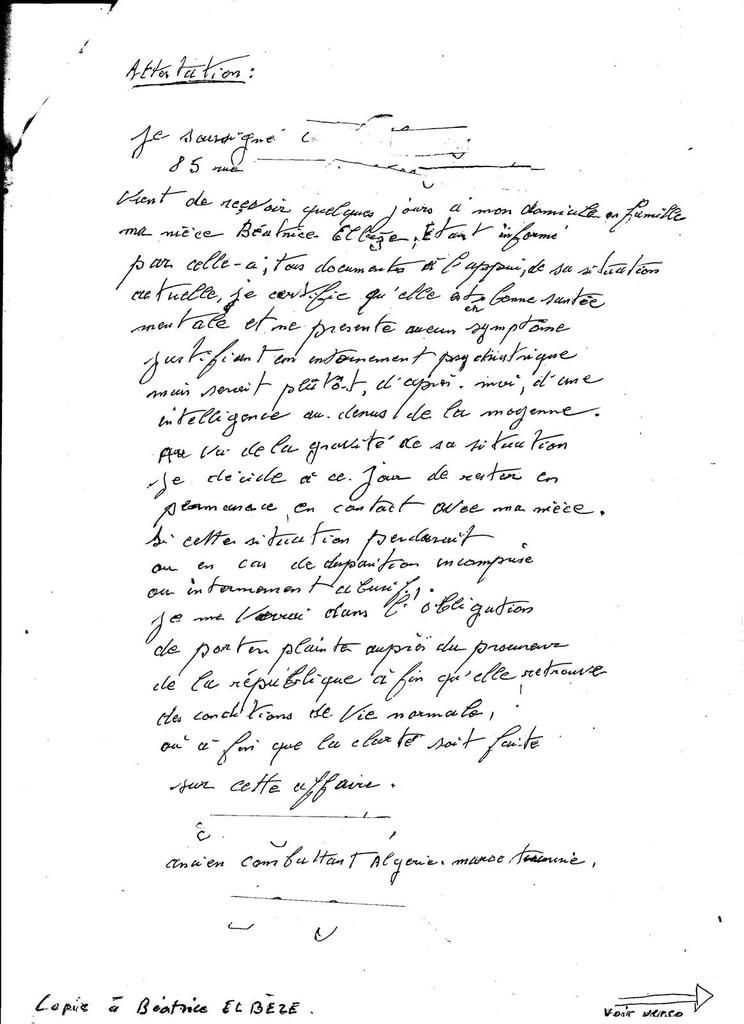 Attestation :
je soussigné
85 rue
Vient de reçevoir quelques jours à mon domicile en famille
ma nièce Béatrice Elbèze, Etant informé
par celle-ci, tous documents à l'appui, de sa situation
actuelle, je certifie qu'elle est en bonne santée
mentale et ne présente aucun symptôme
justifiant un internement psychiatrique
mais serait plûtôt, d'après moi, d'une
intelligence au-denus de la moyenne.
Au vu de la gravité de sa situation
je décide à ce jour de rester en
permanence en contact avec ma nièce.
Si cette situation perdurait
ou en cas de disparition incomprise
ou internement abusif,
je me verrai dans l'obligation
de porter plainte auprès du procureur
de la république à fin qu'elle retrouve
des conditions de vie normale,
où à fin que la clarté soit faite
sur cette affaire.
ancien combattant Algérie. maroc tunisie.
Copie à Béatrice ELBÈZE.
voir verso